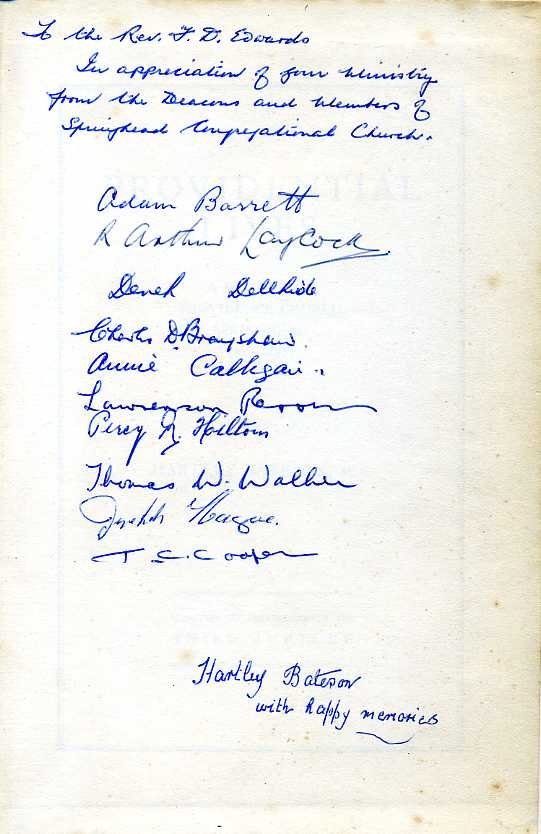 To the Rev. F. D. Edwards
In appreciation of your Ministry
from the Deacons and Members of
Springhead Congregational Church.
Adam Barrett
R Arthur Laycock
Derek
Charles D. Brayshaw.
Annie
Lawrenson
Percy N. Hiltom
Thomas W. Walker
Joseph Hague.
T. C. Cooper
Hartley Bateson
with happy memories